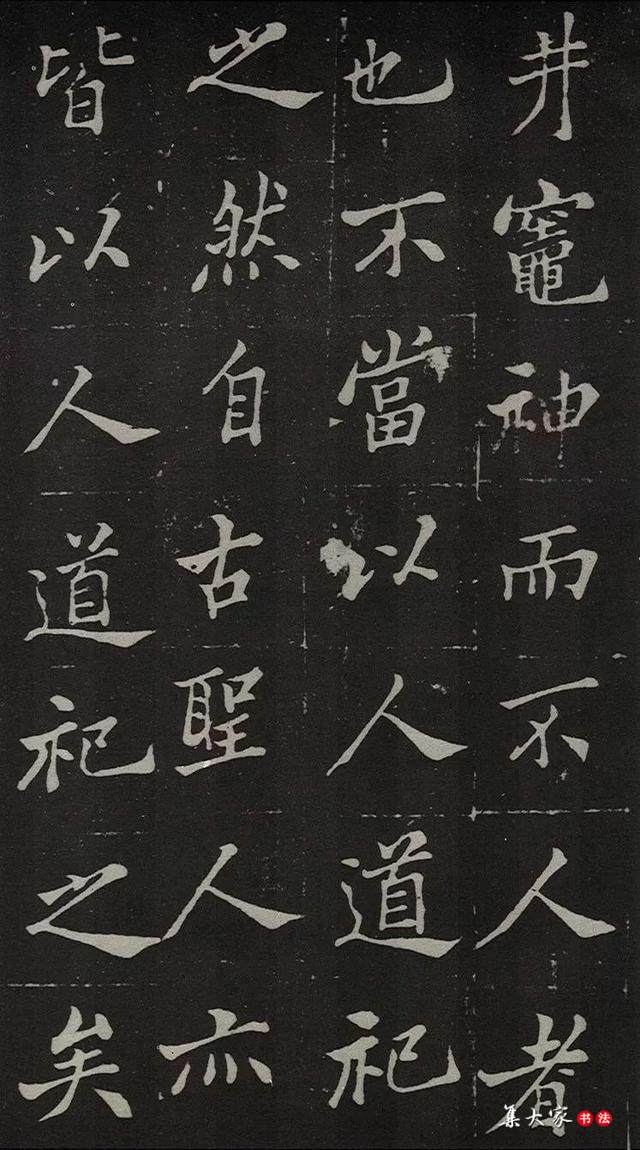 井竈神而不人者
也不當以人道祀
之然自古聖人亦
皆以人道祀之矣
集大家书法